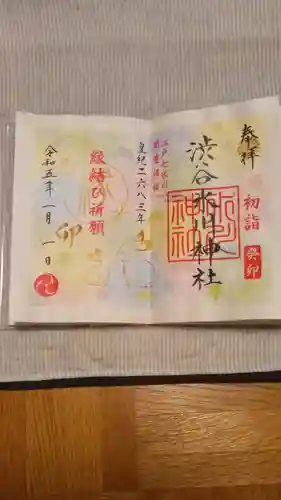 奉拝
初詣
癸卯
渋谷氷川神社
江戸七氷川
皇紀二六八三年
縁結び祈願
卯
令和五年一月一日